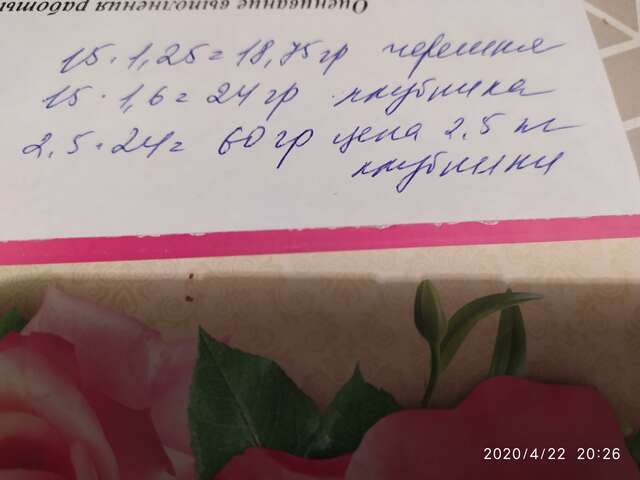 Оценивание выполнения работы
15 · 1,25 = 18,75 гр черешня
15 · 1,6 = 24 гр клубника
2,5 · 24 = 60 гр цена 2,5 кг
клубники
2020/4/22 20:26